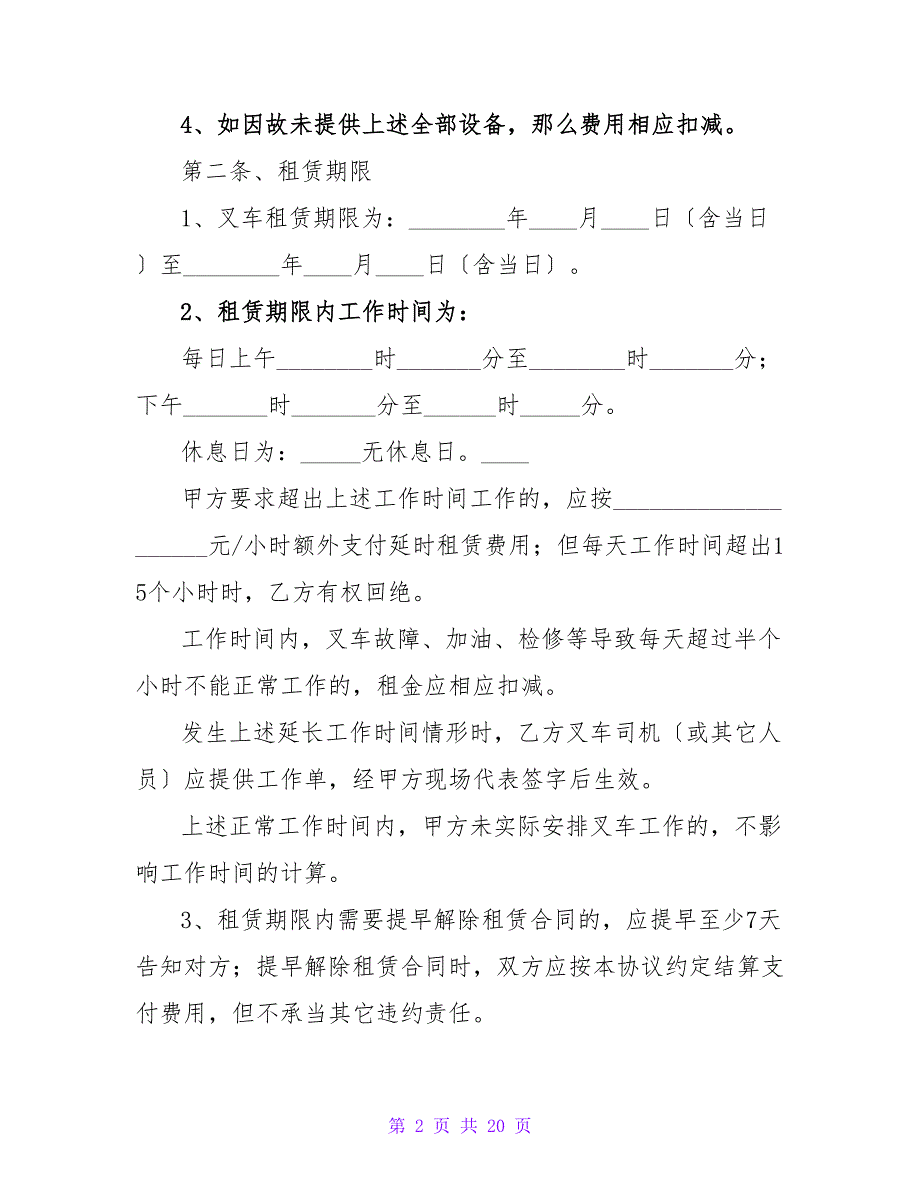 4、如因故未提供上述全部设备，那么费用相应扣减。
第二条、租赁期限
1、叉车租赁期限为：________年____月____日〔含当日
〕至________年____月____日〔含当日〕。
2、租赁期限内工作时间为：
每日上午________时_______分至________时_______分；
下午_______时_______分至______时_____分。
休息日为：_____无休息日。____
甲方要求超出上述工作时间工作的，应按______________
______元/小时额外支付延时租赁费用；但每天工作时间超出1
5个小时时，乙方有权回绝。
工作时间内，叉车故障、加油、检修等导致每天超过半个
小时不能正常工作的，租金应相应扣减。
发生上述延长工作时间情形时，乙方叉车司机〔或其它人
员〕应提供工作单，经甲方现场代表签字后生效。
上述正常工作时间内，甲方未实际安排叉车工作的，不影
响工作时间的计算。
3、租赁期限内需要提早解除租赁合同的，应提早至少7天
告知对方；提早解除租赁合同时，双方应按本协议约定结算支
付费用，但不承当其它违约责任。
第 2 页 共 20 页